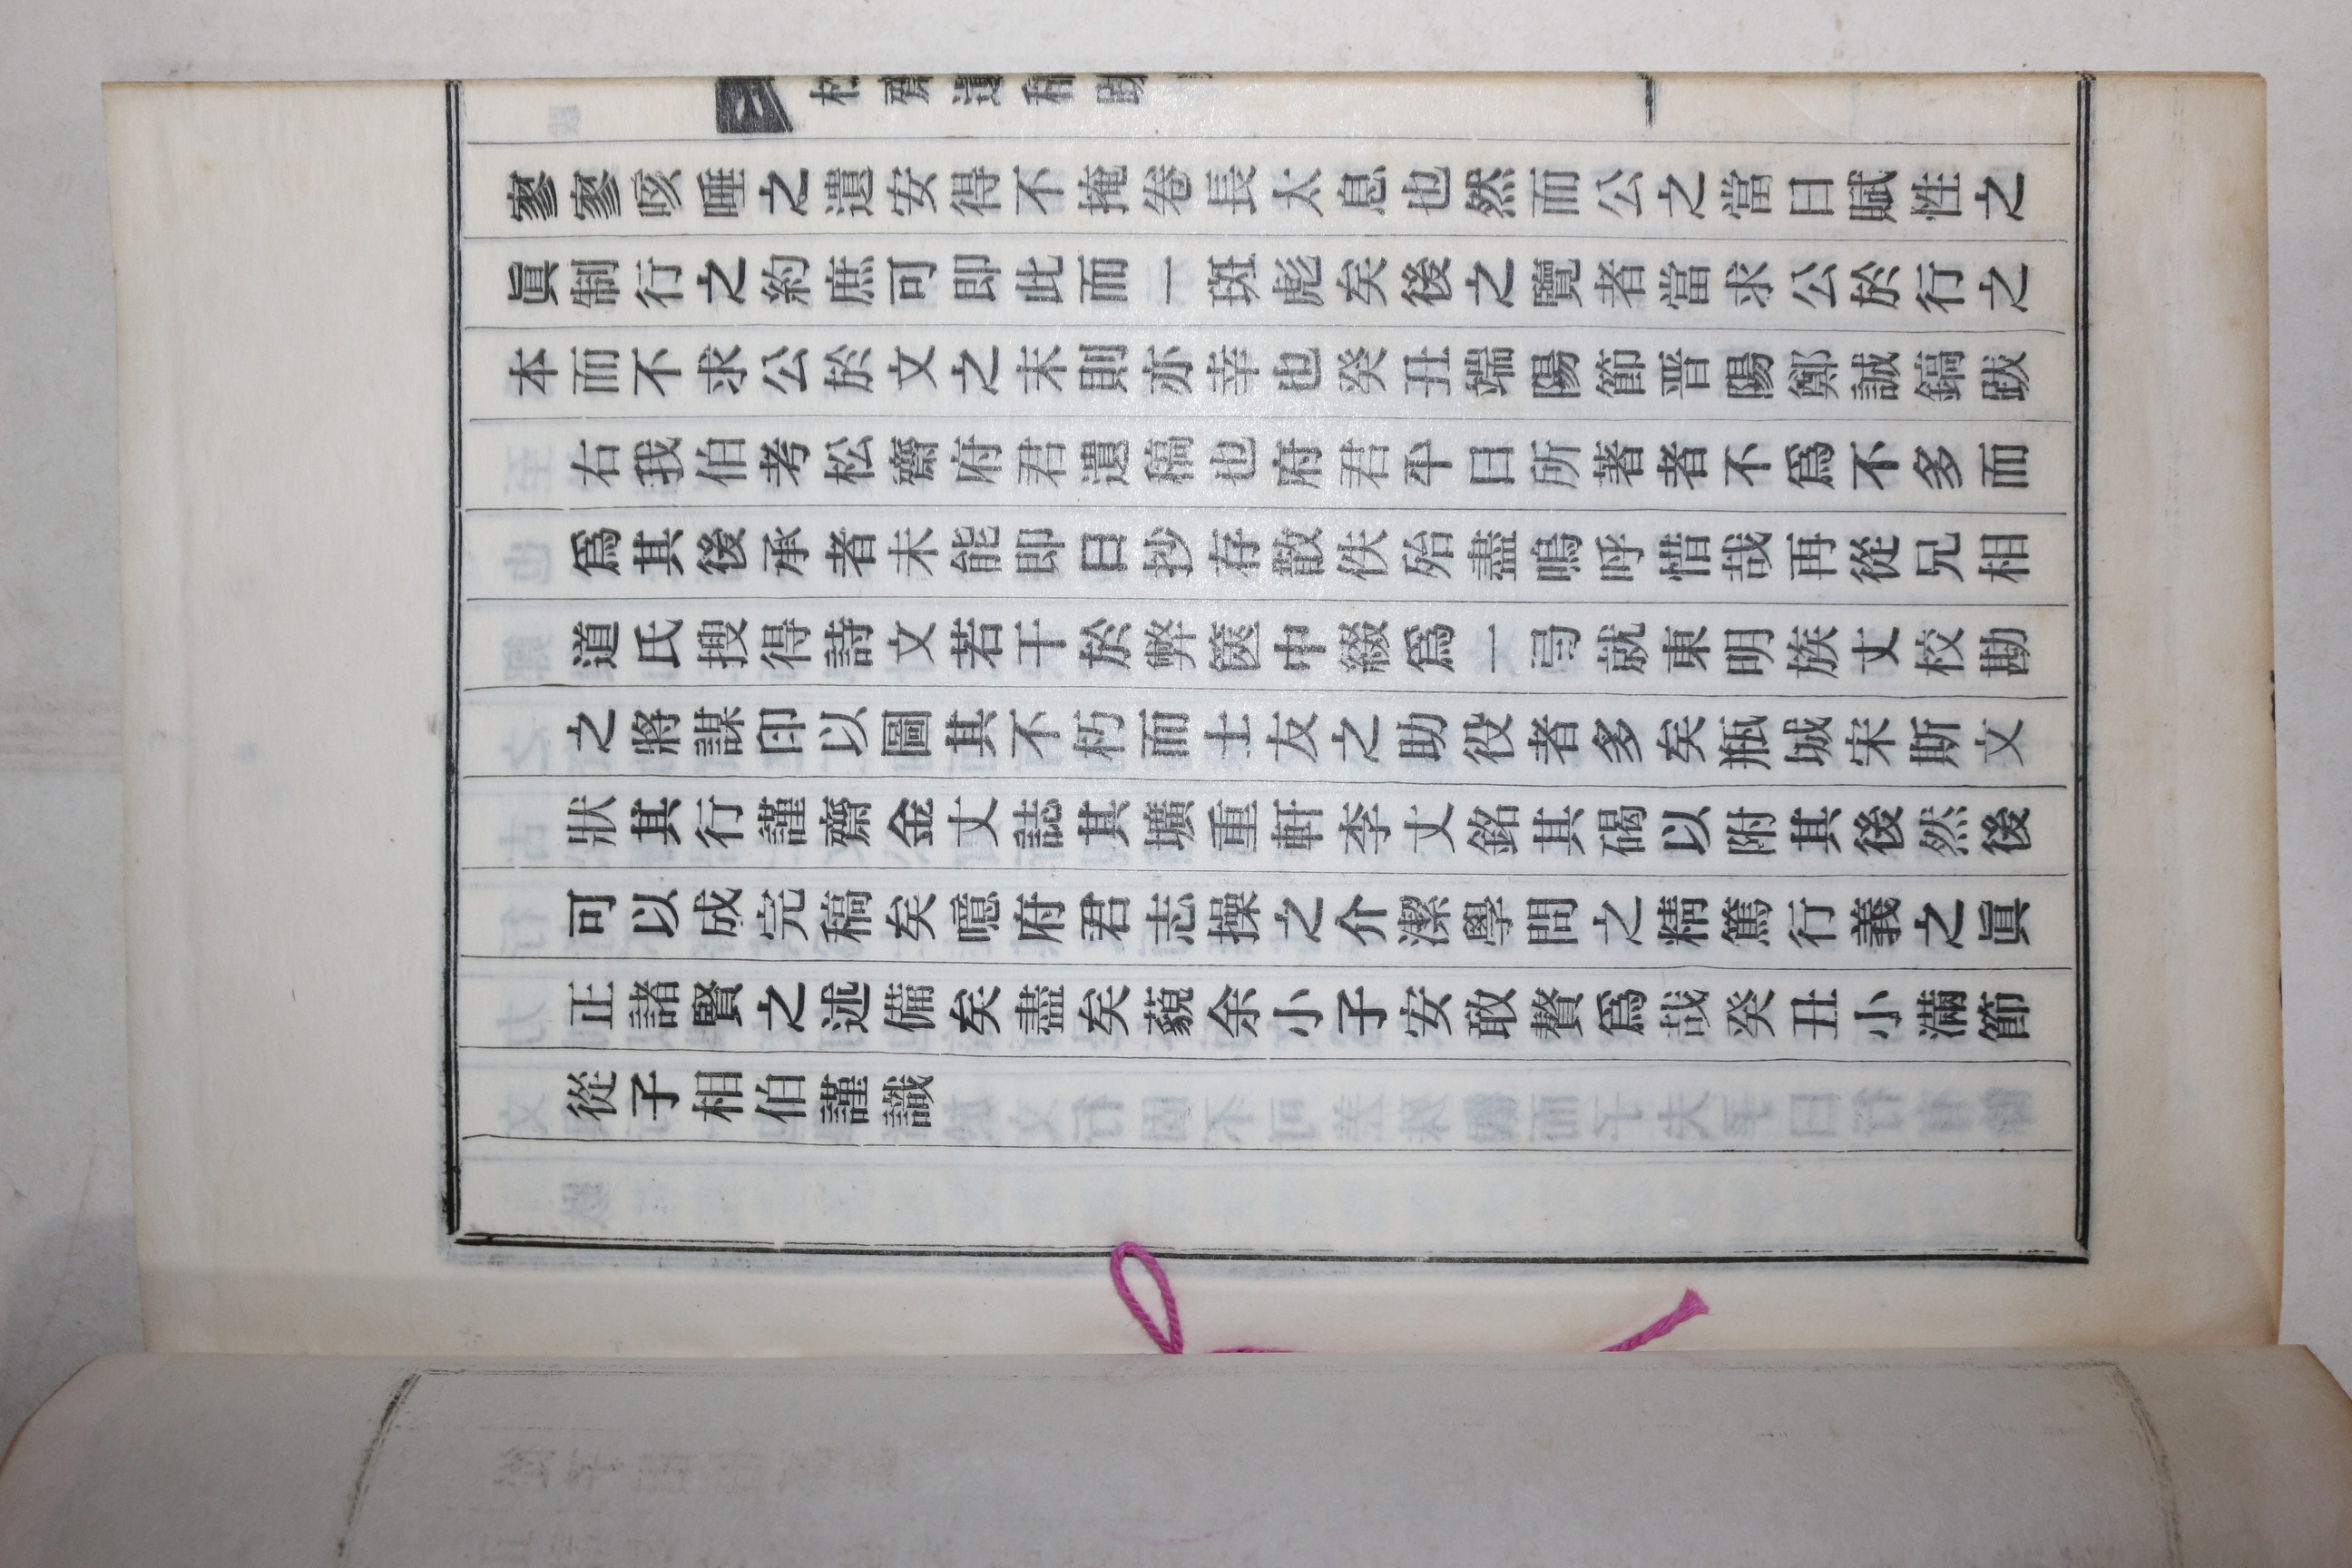 松齋遺稿跋
一
寥寥咳唾之遺安得不掩卷長太息也然而公之當日賦性之
眞制行之約庶可即此而一斑彪矣後之覽者當求公於行之
本而不求公於文之末則亦幸也癸丑端陽節晋陽鄭誠鎬跋
右我伯考松齋府君遺稿也府君平日所著者不爲不多而
爲其後承者未能即日抄存散佚殆盡嗚呼惜哉再從兄相
道氏搜得詩文若干於弊篋中綴爲一弓就東明族丈校勘
之將謀印以圖其不朽而士友之助役者多矣瓶城宋斯文
狀其行謹齋金丈誌其壙重軒李丈銘其碣以附其後然後
可以成完稿矣噫府君志操之介潔學問之精篤行義之眞
正諸賢之述備矣盡矣藐余小子安敢贅爲哉癸丑小滿節
從子相伯謹識